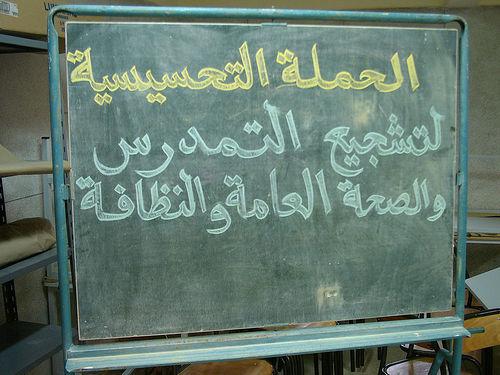 الحملة التحسيسية
لتشجيع التمدرس
والصحة العامة والنظافة